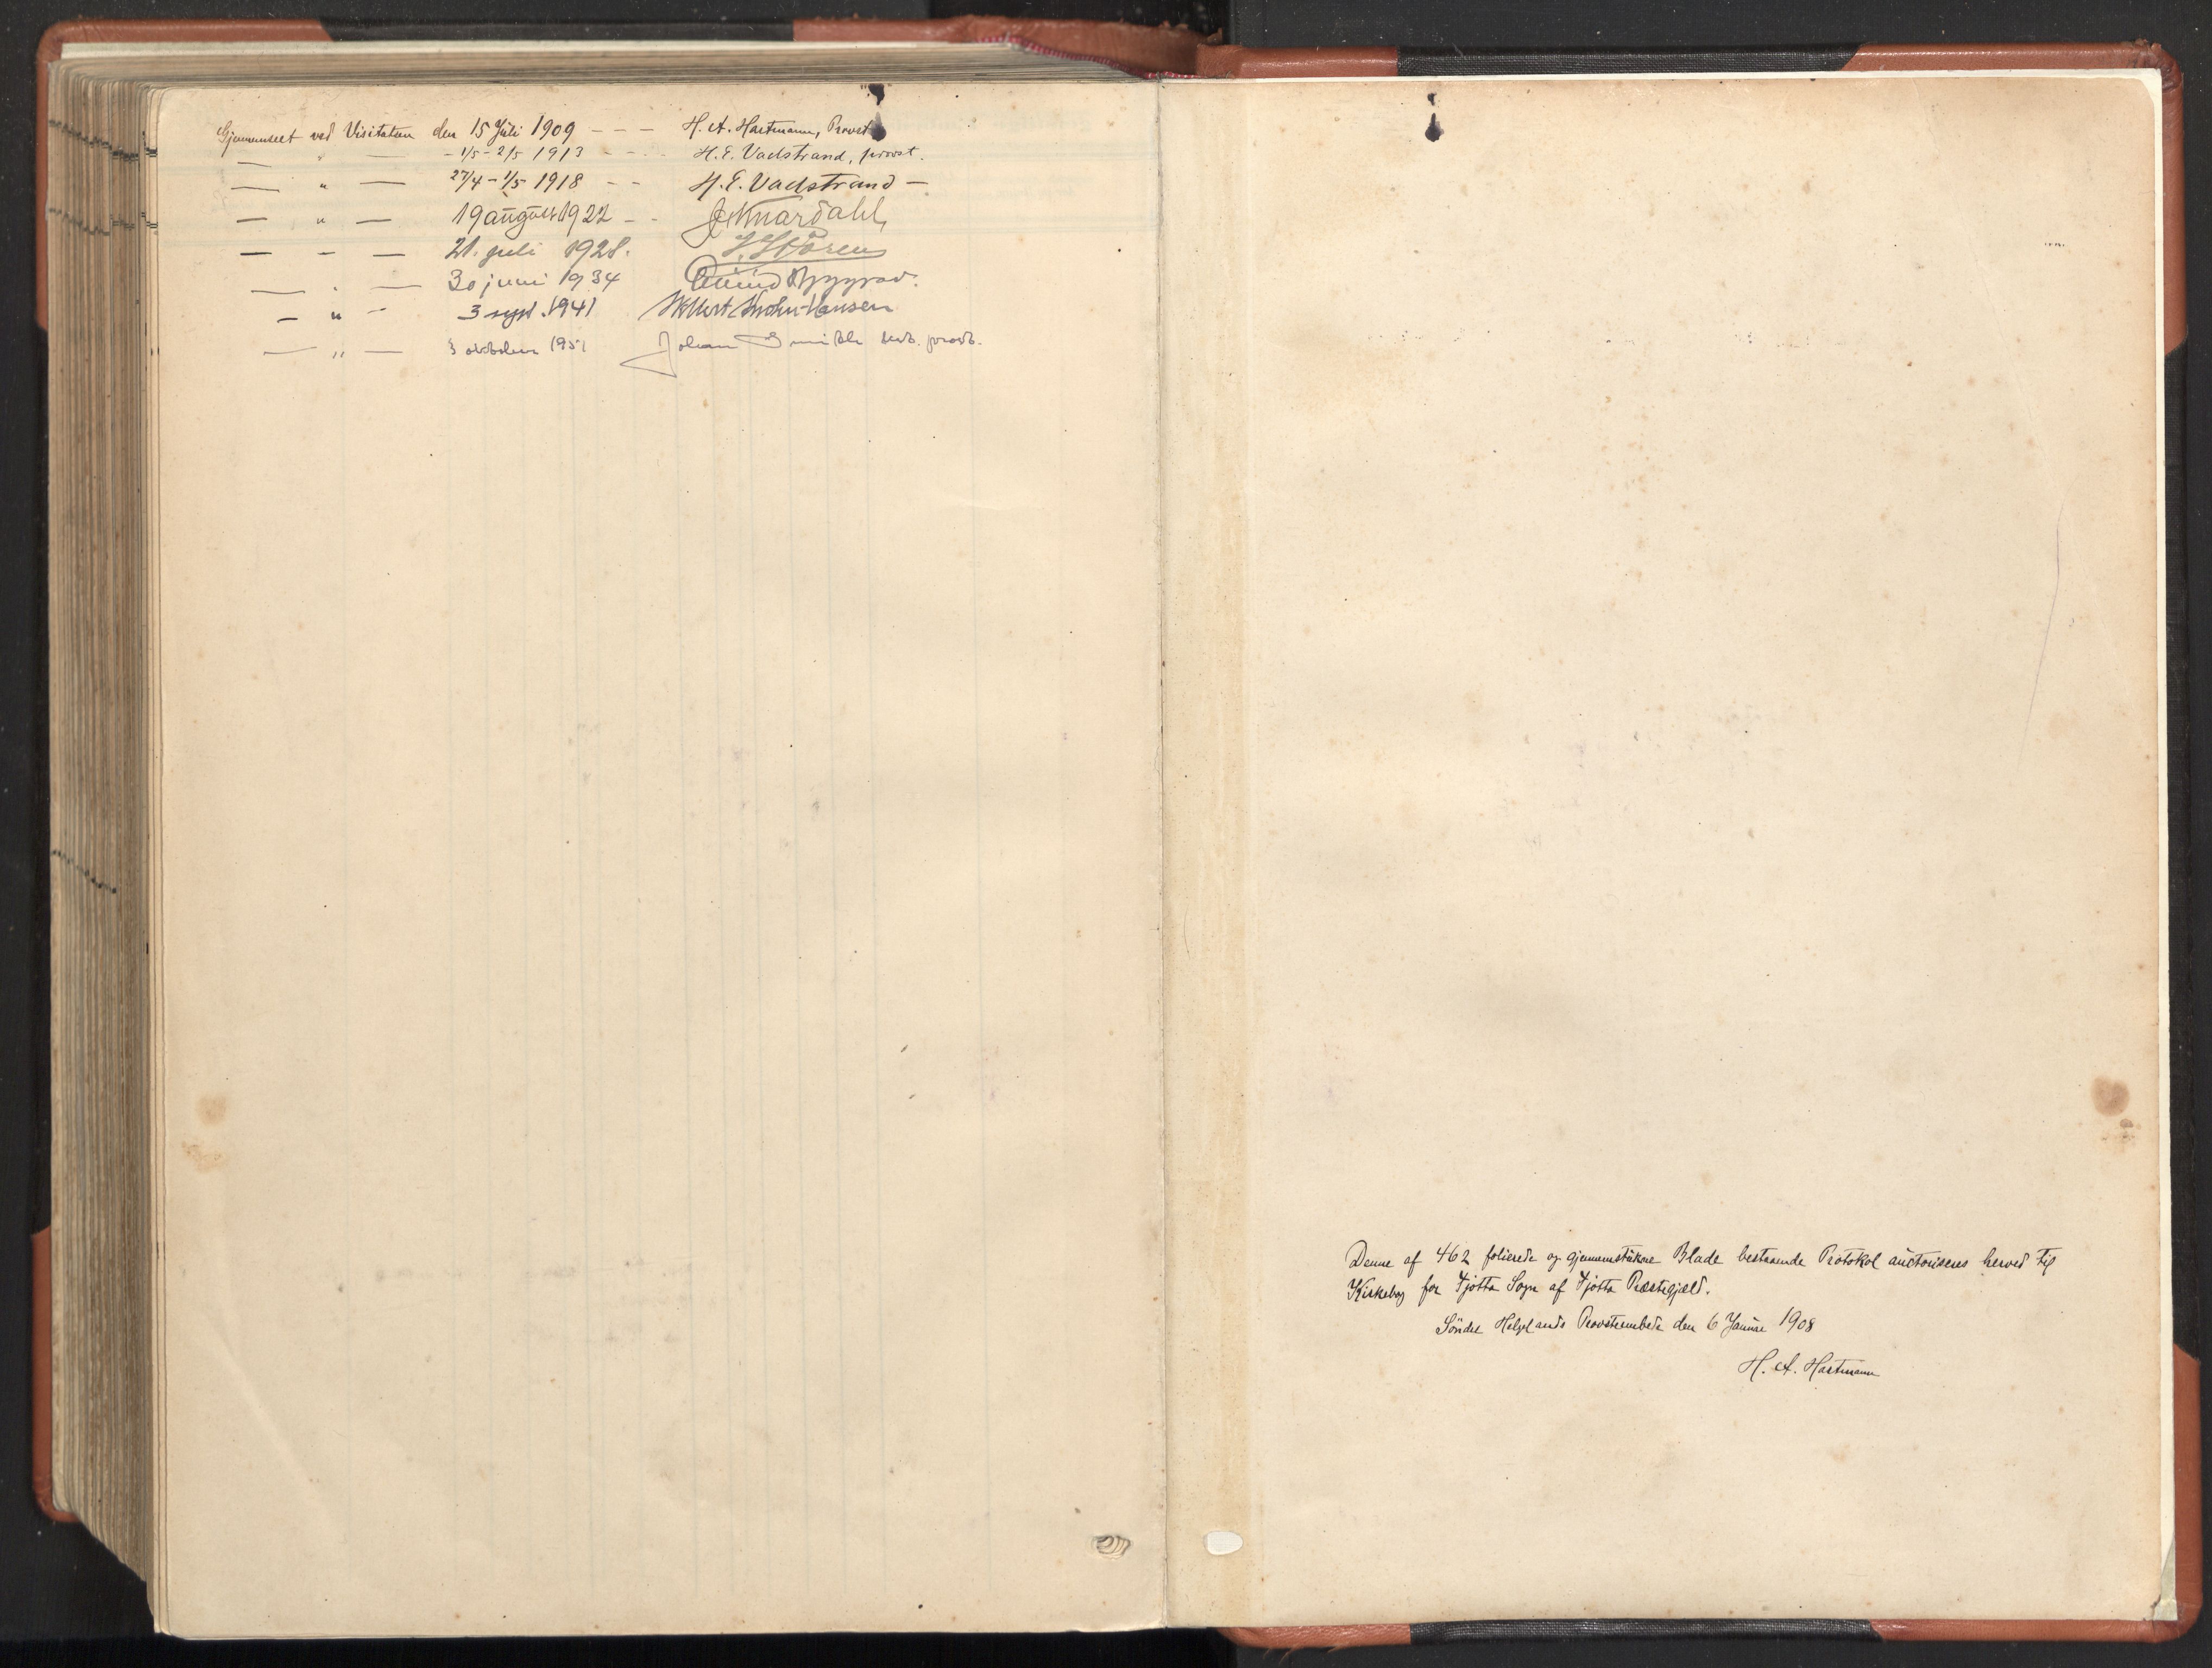 Gjennemseet ved Visitatsen den 15 Juli 1909 - - - H. A. Hartmann, Provst
— " — - 1/5 - 2/5 1913 - - - H. E. Vadstrand, provst.
— " — 27/4 - 1/5 1918 - - H. E. Vadstrand —
— " — 19 august 1922 - - J. Knardahl,
— - — 21. juli 1928. J. Støren
— " — 30 juni 1934 Eivind Berggrav.
— " - 3 sept. 1941 Wollert Krohn-Hansen
— " — 3 oktober 1951 Johan Smidth prost.
Denne af 462 folierede og gjennemstukne Blade bestaaende Protokol auctoriseres herved til
Kirkebog for Tjøtta Sogn af Tjøtta Præstegjæld.
Søndre Helgelands Provsteembede den 6 Januar 1908
H. A. Hartmann